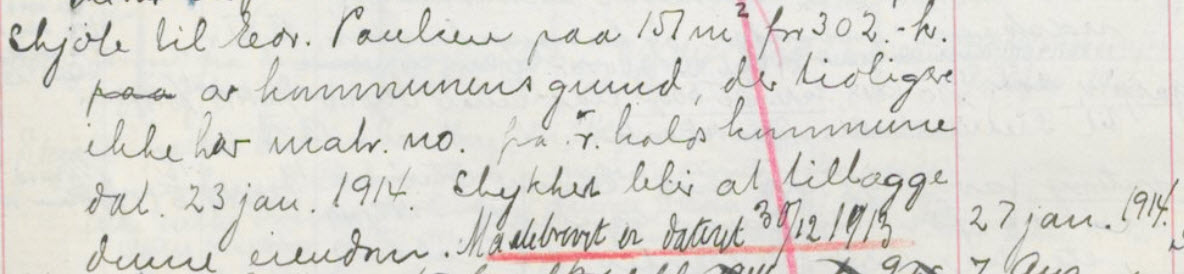 Skjöte til Edv. Paulsen paa 151 m² for 302.- kr.
paa av kommunens grund, der tidligere
ikke har matr. no. fra kommune
dat. 23 jan. 1914. Stykket blir at tillægge
denne eiendom. Maalebrevet er dateret 30/12 1913 27 jan. 1914.